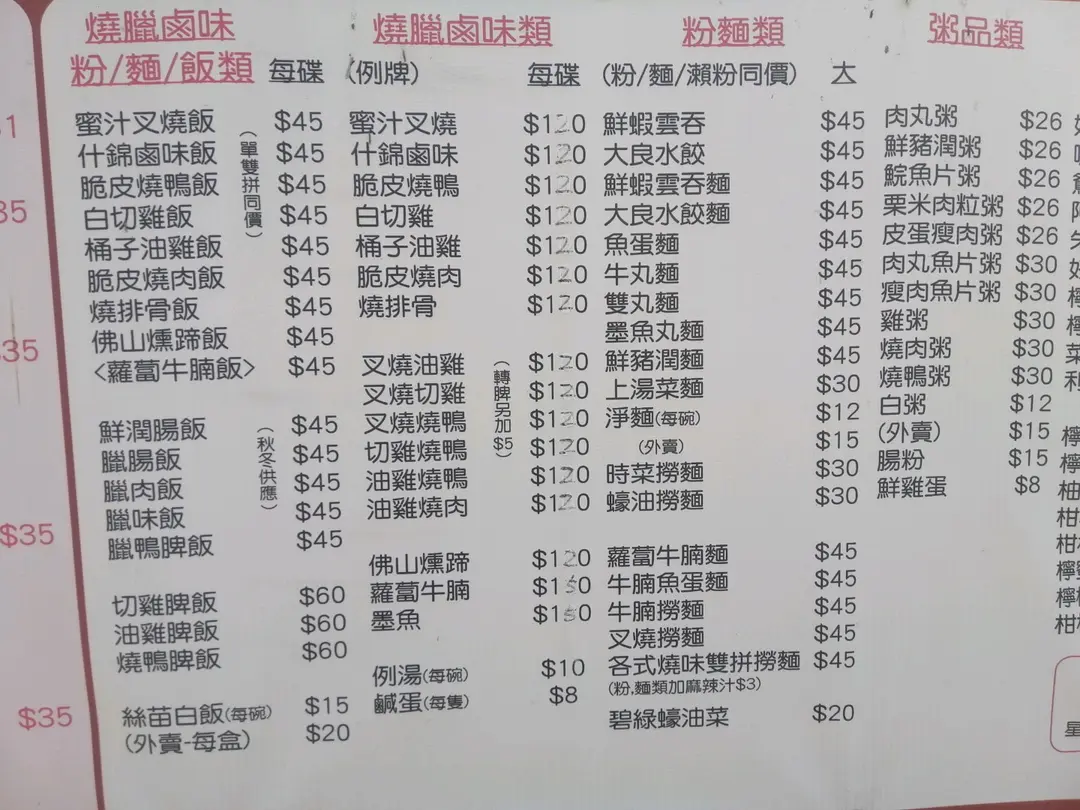 燒臘鹵味
粉/麵/飯類 每碟
蜜汁叉燒飯 $45
什錦鹵味飯 $45
脆皮燒鴨飯 $45
白切雞飯 $45
桶子油雞飯 $45
脆皮燒肉飯 $45
燒排骨飯 $45
佛山燻蹄飯 $45
<蘿蔔牛腩飯> $45
(單雙拼同價)
鮮潤腸飯 $45
臘腸飯 $45
臘肉飯 $45
臘味飯 $45
臘鴨脾飯 $45
(秋冬供應)
切雞脾飯 $60
油雞脾飯 $60
燒鴨脾飯 $60
絲苗白飯(每碗) $15
(外賣-每盒) $20
燒臘鹵味類
(例牌) 每碟
蜜汁叉燒 $120
什錦鹵味 $120
脆皮燒鴨 $120
白切雞 $120
桶子油雞 $120
脆皮燒肉 $120
燒排骨 $120
叉燒油雞 $120
叉燒切雞 $120
叉燒燒鴨 $120
切雞燒鴨 $120
油雞燒鴨 $120
油雞燒肉 $120
(轉脾另加$5)
佛山燻蹄 $120
蘿蔔牛腩 $150
墨魚 $150
例湯(每碗) $10
鹹蛋(每隻) $8
粉麵類
(粉/麵/瀨粉同價) 大
鮮蝦雲吞 $45
大良水餃 $45
鮮蝦雲吞麵 $45
大良水餃麵 $45
魚蛋麵 $45
牛丸麵 $45
雙丸麵 $45
墨魚丸麵 $45
鮮豬潤麵 $45
上湯菜麵 $30
淨麵(每碗) $12
(外賣) $15
時菜撈麵 $30
蠔油撈麵 $30
蘿蔔牛腩麵 $45
牛腩魚蛋麵 $45
牛腩撈麵 $45
叉燒撈麵 $45
各式燒味雙拼撈麵 $45
(粉,麵類加麻辣汁$3)
碧綠蠔油菜 $20
粥品類
肉丸粥 $26
鮮豬潤粥 $26
鯇魚片粥 $26
栗米肉粒粥 $26
皮蛋瘦肉粥 $26
肉丸魚片粥 $30
瘦肉魚片粥 $30
雞粥 $30
燒肉粥 $30
燒鴨粥 $30
白粥 $12
(外賣) $15
腸粉 $15
鮮雞蛋 $8
$35
$35